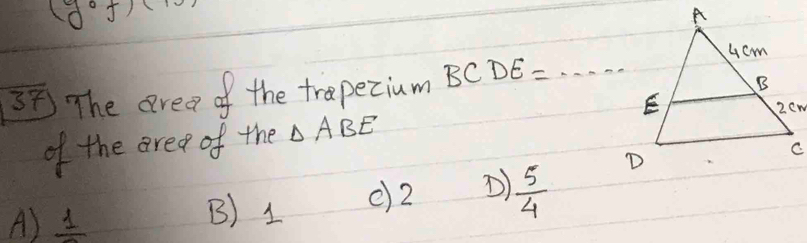 (g∘f)(
37) The area of the trapezium BCDE = ......
of the area of the Δ ABE
A) 1
B) 1
C) 2
D) 5/4
A
4cm
B
E
2cm
D
C